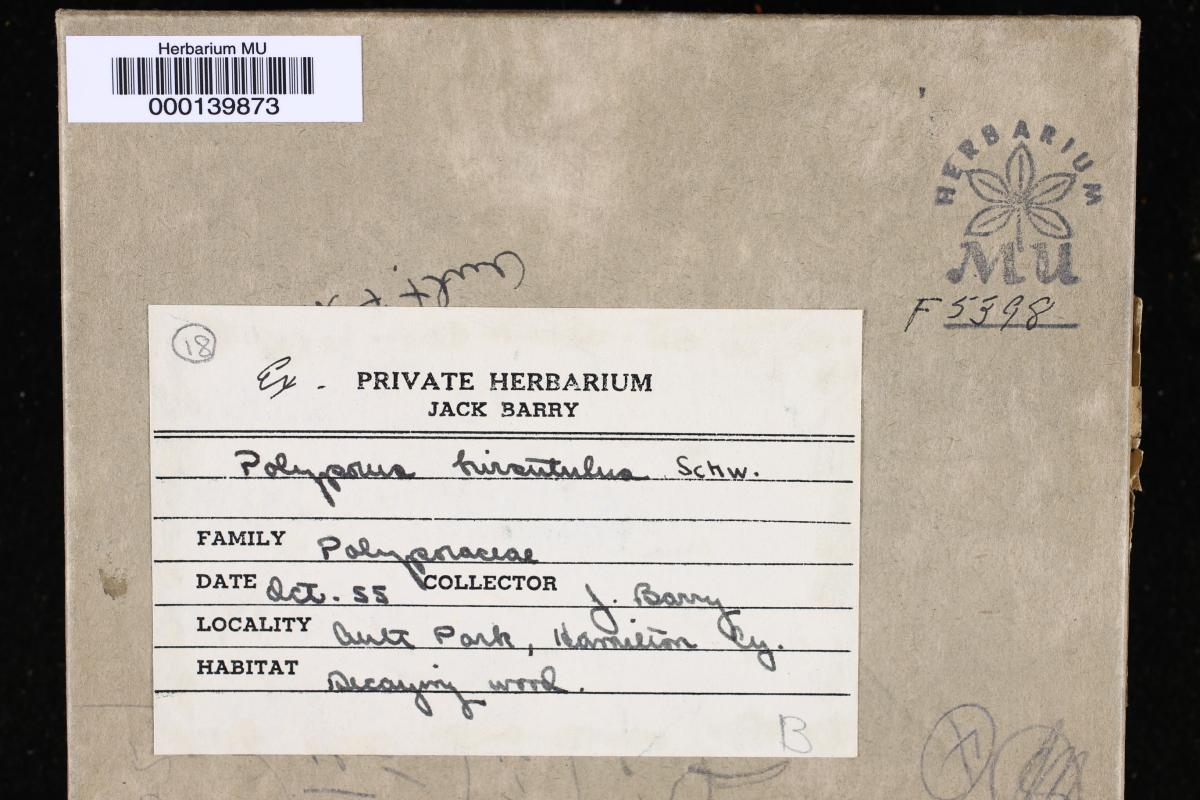 Herbarium MU
000139873
HERBARIUM
MU
F 5398
Ault P
18
Ex. PRIVATE HERBARIUM
JACK BARRY
Polyporus hirsutulus Schw.
FAMILY Polyporaceae
DATE Oct. 55 COLLECTOR J. Barry
LOCALITY Ault Park, Hamilton Cy.
HABITAT Decaying wood.
B